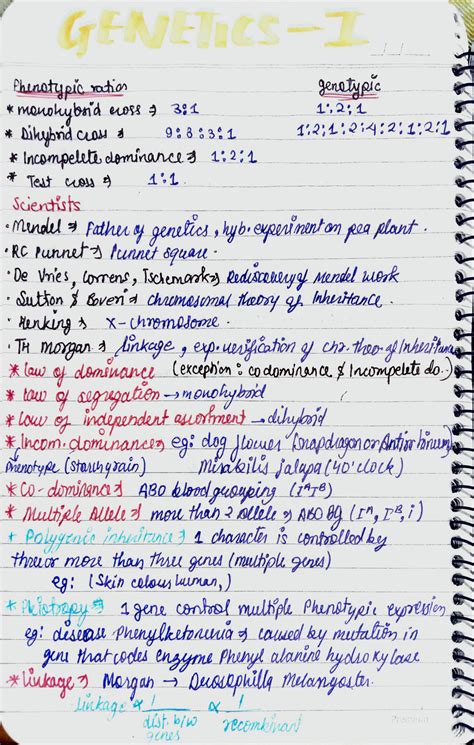 GENETICS - I
Phenotypic ratios genotypic
* monohybrid cross → 3:1 1:2:1
* Dihybrid cross → 9:3:3:1 1:2:1:2:4:2:1:2:1
* Incompelete dominance → 1:2:1
* Test cross → 1:1
Scientists
· Mendel → Father of genetics, hyb. experiment on pea plant.
· RC Punnet → Punnet square.
· De Vries, Correns, Tschemark → Rediscovery of Mendel work
· Sutton & Boveri → chromosomal theory of Inheritance.
· Henking → X-chromosome.
· TH Morgan → linkage, exp. verification of chr. theo. of Inheritance
* law of dominance (exception: codominance & Incompelete do.)
* law of segregation → monohybrid
* law of independent assortment → dihybrid
* Incom. dominance → eg: dog flower (snapdragon or Antirrhinum)
Phenotype (starch grain) Mirabilis jalapa (4 O'clock)
* Co-dominance → ABO blood grouping (IᴬIᴮ)
* Multiple Allele → more than 2 allele → ABO BG (Iᴬ, Iᴮ, i)
* Polygenic inheritance → 1 character is controlled by
three or more than three genes (multiple genes)
eg: (Skin colour human,)
* Pliotropy → 1 gene control multiple Phenotypic expression
eg: disease Phenylketonuria → caused by mutation in
gene that codes enzyme Phenyl alanine hydroxylase
* Linkage → Morgan → Drosophilla Melangoster.
linkage ∝ 1 ∝ 1
dist. b/w recombinant
genes